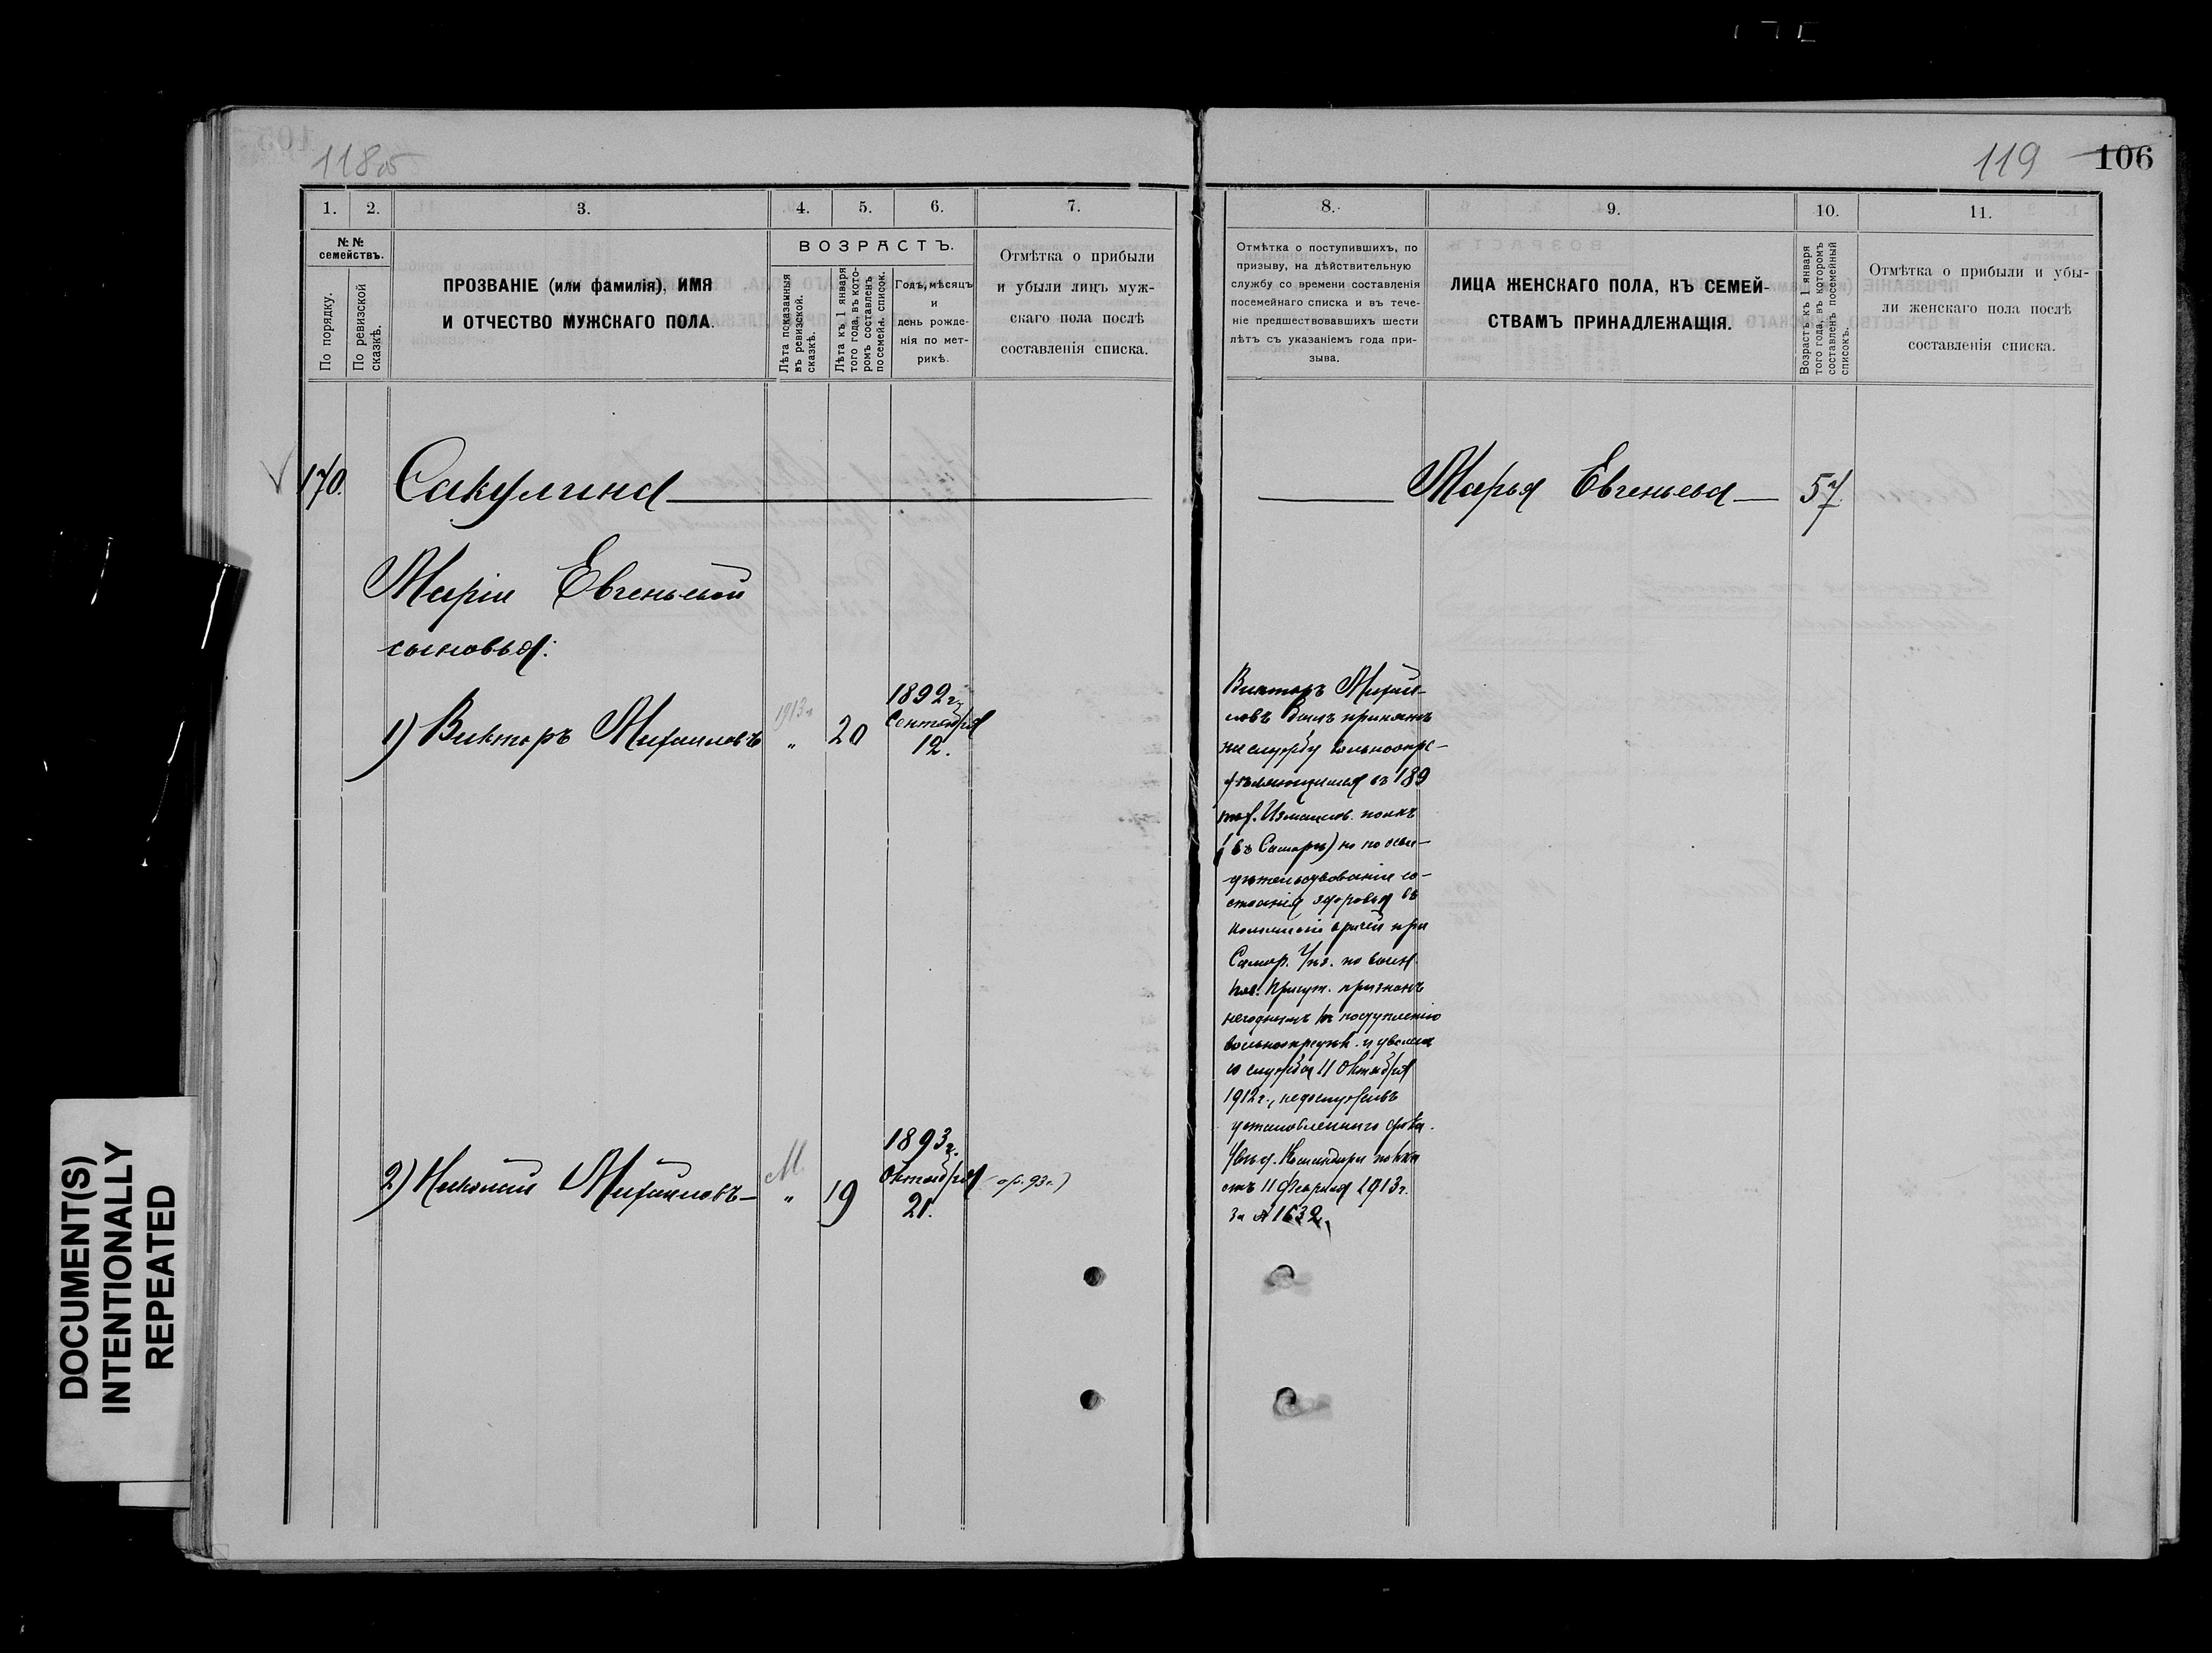 118об
119 106
1. 2. 3. 4. 5. 6. 7.
№ №
семействъ.
По порядку.
По ревизской
сказкѣ.
ПРОЗВАНІЕ (или фамилія), ИМЯ
И ОТЧЕСТВО МУЖСКАГО ПОЛА.
ВОЗРАСТЪ.
Лѣта показанныя
въ ревизской.
сказкѣ.
Лѣта къ 1 января
того года, въ кото-
ромъ составленъ
посемейн. списокъ.
Годъ, мѣсяцъ
и
день рожде-
нія по мет-
рикѣ.
Отмѣтка о прибыли
и убыли лицъ муж-
скаго пола послѣ
составленія списка.
170. Сакулина
Маріи Евгеньевой
сыновья:
1) Викторъ Михаиловъ 1913г. " 20 1892г. Сентября 12.
2) Николай Михаиловъ М " 19 1893г. Октября 21. 93г.)
8. 9. 10. 11.
Отмѣтка о поступившихъ, по
призыву, на дѣйствительную
службу со времени составленія
посемейнаго списка и въ тече-
ніе предшествовавшихъ шести
лѣтъ съ указаніемъ года при-
зыва.
ЛИЦА ЖЕНСКАГО ПОЛА, КЪ СЕМЕЙ-
СТВАМЪ ПРИНАДЛЕЖАЩІЯ.
Возрастъ къ 1 января
того года, въ которомъ
составленъ посемейный
списокъ.
Отмѣтка о прибыли и убы-
ли женскаго пола послѣ
составленія списка.
Марья Евгеньева 57.
Викторъ Михаи-
ловъ былъ принятъ
на службу вольноопре-
дѣляющимся въ 189
пѣх. Измаил. полкъ
(въ Самарѣ) но по осви-
дѣтельствованіи со-
стоянія здоровья въ
комиссіи врачей при
Самар. Уѣз. по воин.
пов. Присут. признанъ
негоднымъ къ поступленію
вольноопредѣл. и уволенъ
со службы 11 Октября
1912г., недослуживъ
установленнаго срока.
Увѣд. Командира полка
отъ 11 Февраля 1913г.
за № 1632,
DOCUMENT(S)
INTENTIONALLY
REPEATED